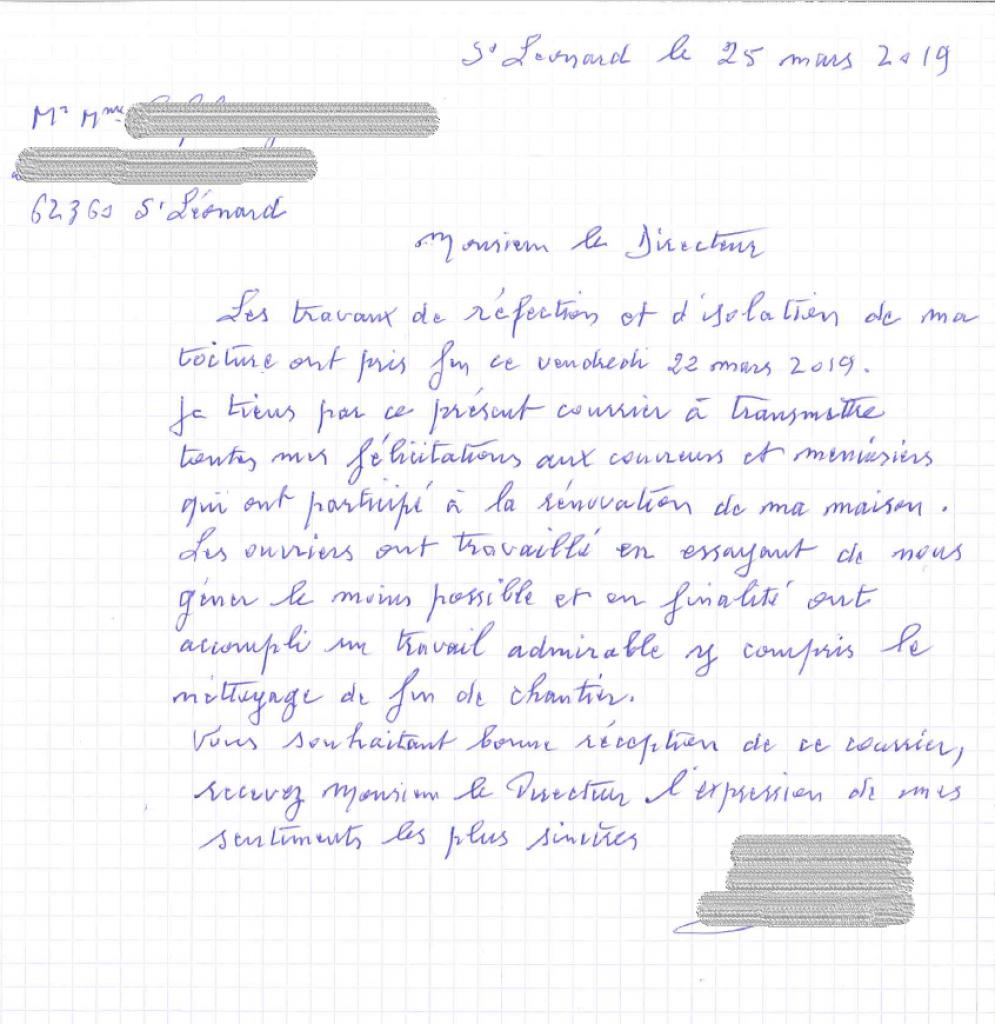 St Leonard le 25 mars 2019
Mr Mme
62360 St Léonard
Monsieur le Directeur
Les travaux de réfection et d'isolation de ma
toiture ont pris fin ce vendredi 22 mars 2019.
Je tiens par ce présent courrier à transmettre
toutes mes félicitations aux couvreurs et menuisiers
qui ont participé à la rénovation de ma maison.
Les ouvriers ont travaillé en essayant de nous
gêner le moins possible et en finalité ont
accompli un travail admirable y compris le
nettoyage de fin de chantier.
Vous souhaitant bonne réception de ce courrier,
recevez Monsieur le Directeur l'expression de mes
sentiments les plus sincères